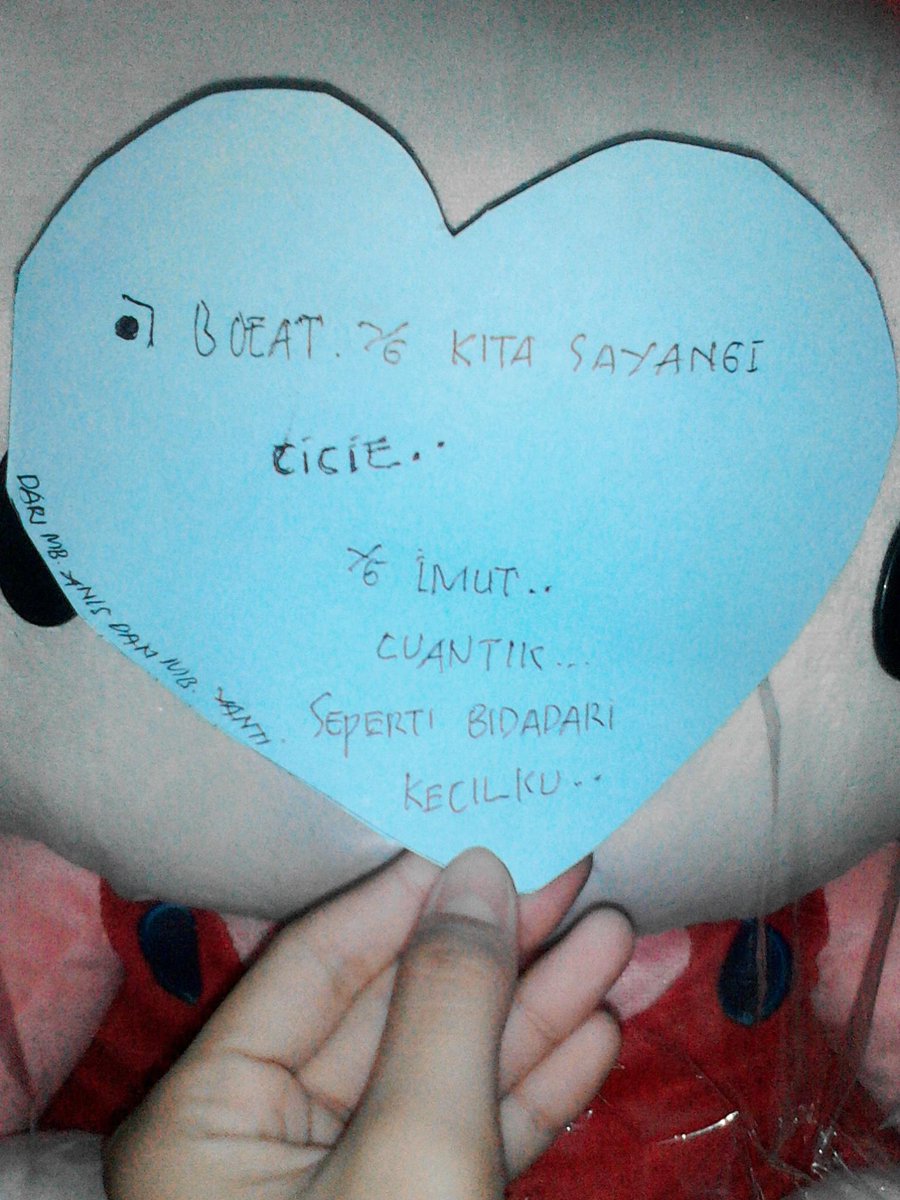 BOEAT. YG KITA SAYANGI
CICIE..
YG IMUT..
CUANTIK...
SEPERTI BIDADARI
KECILKU..
DARI MB. ANIS DAN MB. YANTI.